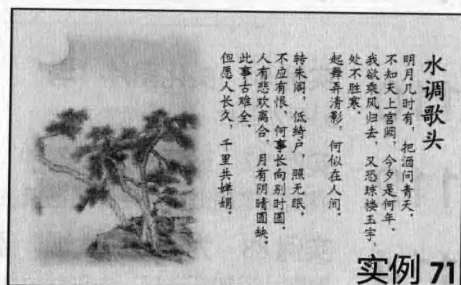 水调歌头
明月几时有，把酒问青天。
不知天上宫阙，今夕是何年。
我欲乘风归去，又恐琼楼玉宇，
处不胜寒。
起舞弄清影，何似在人间。
转朱阁，低绮户，照无眠，
不应有恨，何事长向别时圆。
人有悲欢离合，月有阴晴圆缺，
此事古难全。
但愿人长久，千里共婵娟。
实例 71